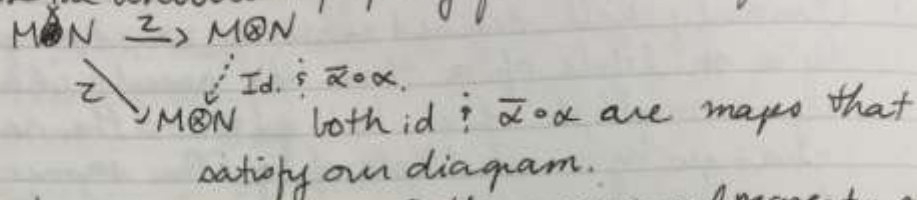 M⊗N —z→ M⊗N
z Id. & ᾱ∘α.
M⊗N both id & ᾱ∘α are maps that
satisfy our diagram.